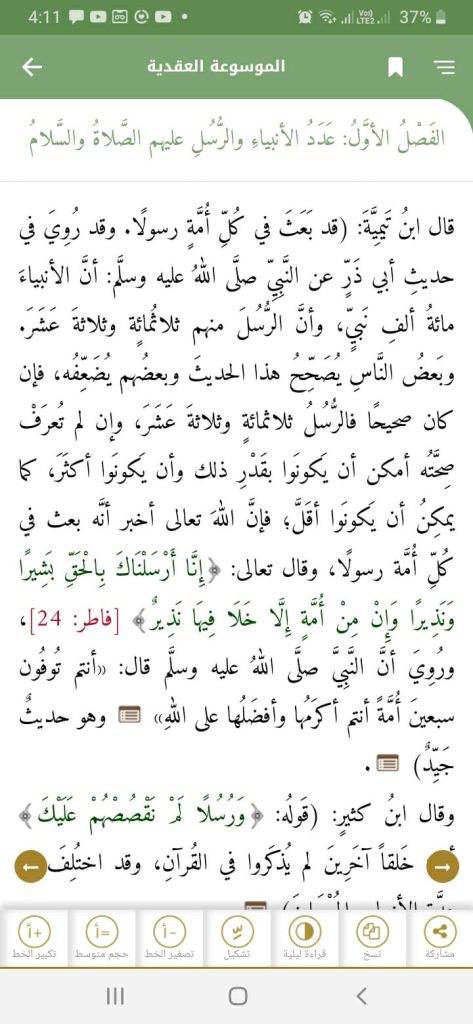 4:11
Vo))
LTE2
37%
الموسوعة العقدية
الفَصْلُ الأوَّلُ: عَدَدُ الأنبياءِ والرُّسُلِ عليهم الصَّلاةُ والسَّلامُ
قال ابنُ تَيميَّةَ: (قد بَعَثَ في كُلِّ أُمَّةٍ رسولًا. وقد رُوِيَ في
حديثِ أبي ذَرٍّ عن النَّبِيِّ صلَّى اللهُ عليه وسلَّم: أنَّ الأنبياءَ
مائةُ ألفِ نَبيٍّ، وأنَّ الرُّسُلَ منهم ثلاثُمائةٍ وثلاثةَ عَشَرَ.
وبَعضُ النَّاسِ يُصَحِّحُ هذا الحديثَ وبعضُهم يُضَعِّفُه، فإن
كان صحيحًا فالرُّسُلُ ثلاثمائةٍ وثلاثةَ عَشَرَ، وإن لم تُعرَفْ
صِحَّتُه أمكن أن يَكونَوا بقَدْرِ ذلك وأن يَكونَوا أكثَرَ، كما
يمكِنُ أن يَكونَوا أقَلَّ؛ فإنَّ اللهَ تعالى أخبر أنَّه بعث في
كُلِّ أُمَّة رسولًا، وقال تعالى: ﴿إِنَّا أَرْسَلْنَاكَ بِالْحَقِّ بَشِيرًا
وَنَذِيرًا وَإِنْ مِنْ أُمَّةٍ إِلَّا خَلَا فِيهَا نَذِيرٌ﴾ [فاطر: 24]،
ورُوِيَ أنَّ النَّبيَّ صلَّى اللهُ عليه وسلَّم قال: «أنتم تُوفُون
سبعينَ أُمَّةً أنتم أكرَمُها وأفضَلُها على اللهِ» وهو حديثٌ
جَيِّدٌ) .
وقال ابنُ كثيرٍ: (قَولُه: ﴿وَرُسُلًا لَمْ نَقْصُصْهُمْ عَلَيْكَ﴾
خَلقاً آخَرِينَ لم يُذكَروا في القُرآنِ، وقد اختُلِفَ
مشاركة
نسخ
قراءة ليلية
تشكيل
تصغير الخط
حجم متوسط
تكبير الخط